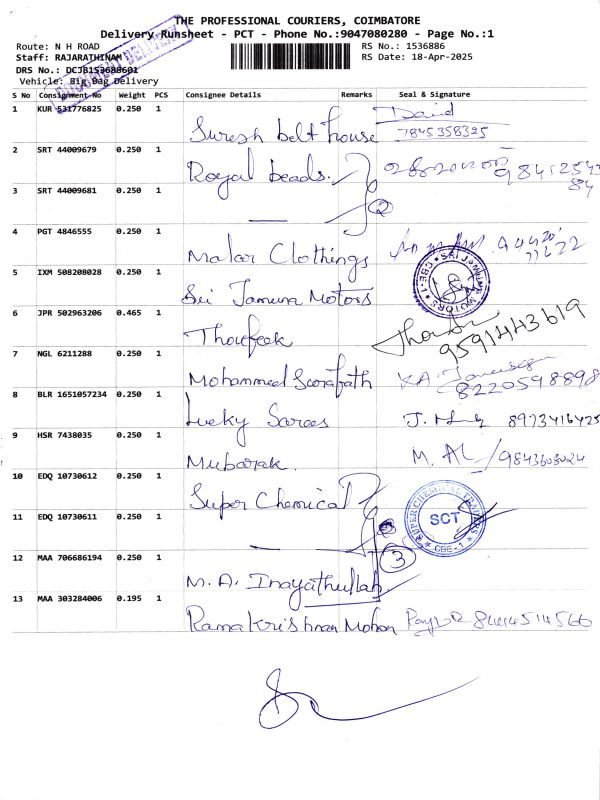 THE PROFESSIONAL COURIERS, COIMBATORE
Delivery Runsheet - PCT - Phone No.:9047080280 - Page No.:1
Route: N H ROAD RS No.: 1536886
Staff: RAJARATHINAM RS Date: 18-Apr-2025
DRS No.: DCJB153688601
Vehicle: Big Bag Delivery
S No Consignment No Weight PCS Consignee Details Remarks Seal & Signature
1 KUR 531776825 0.250 1 Suresh belt house David 7845358325
2 SRT 44009679 0.250 1 Royal beads.
3 SRT 44009681 0.250 1 2
4 PGT 4846555 0.250 1 Malar Clothings
5 IXM 508208028 0.250 1 Sri Jamuna Motors SRI JAMUNA MOTORS CBE-1
6 JPR 502963206 0.465 1 Thoufeek 9591443619
7 NGL 6211288 0.250 1 Mohammed Sarafath 8220598898
8 BLR 1651057234 0.250 1 Lucky Sarees 8973416425
9 HSR 7438035 0.250 1 Mubarak. 9843603024
10 EDQ 10730612 0.250 1 Super Chemical SUPER CHEMICAL TRADERS SCT CBE-1
11 EDQ 10730611 0.250 1
12 MAA 706686194 0.250 1 M. A. Inayathullah 3
13 MAA 303284006 0.195 1 Ramakrishnan Mohan